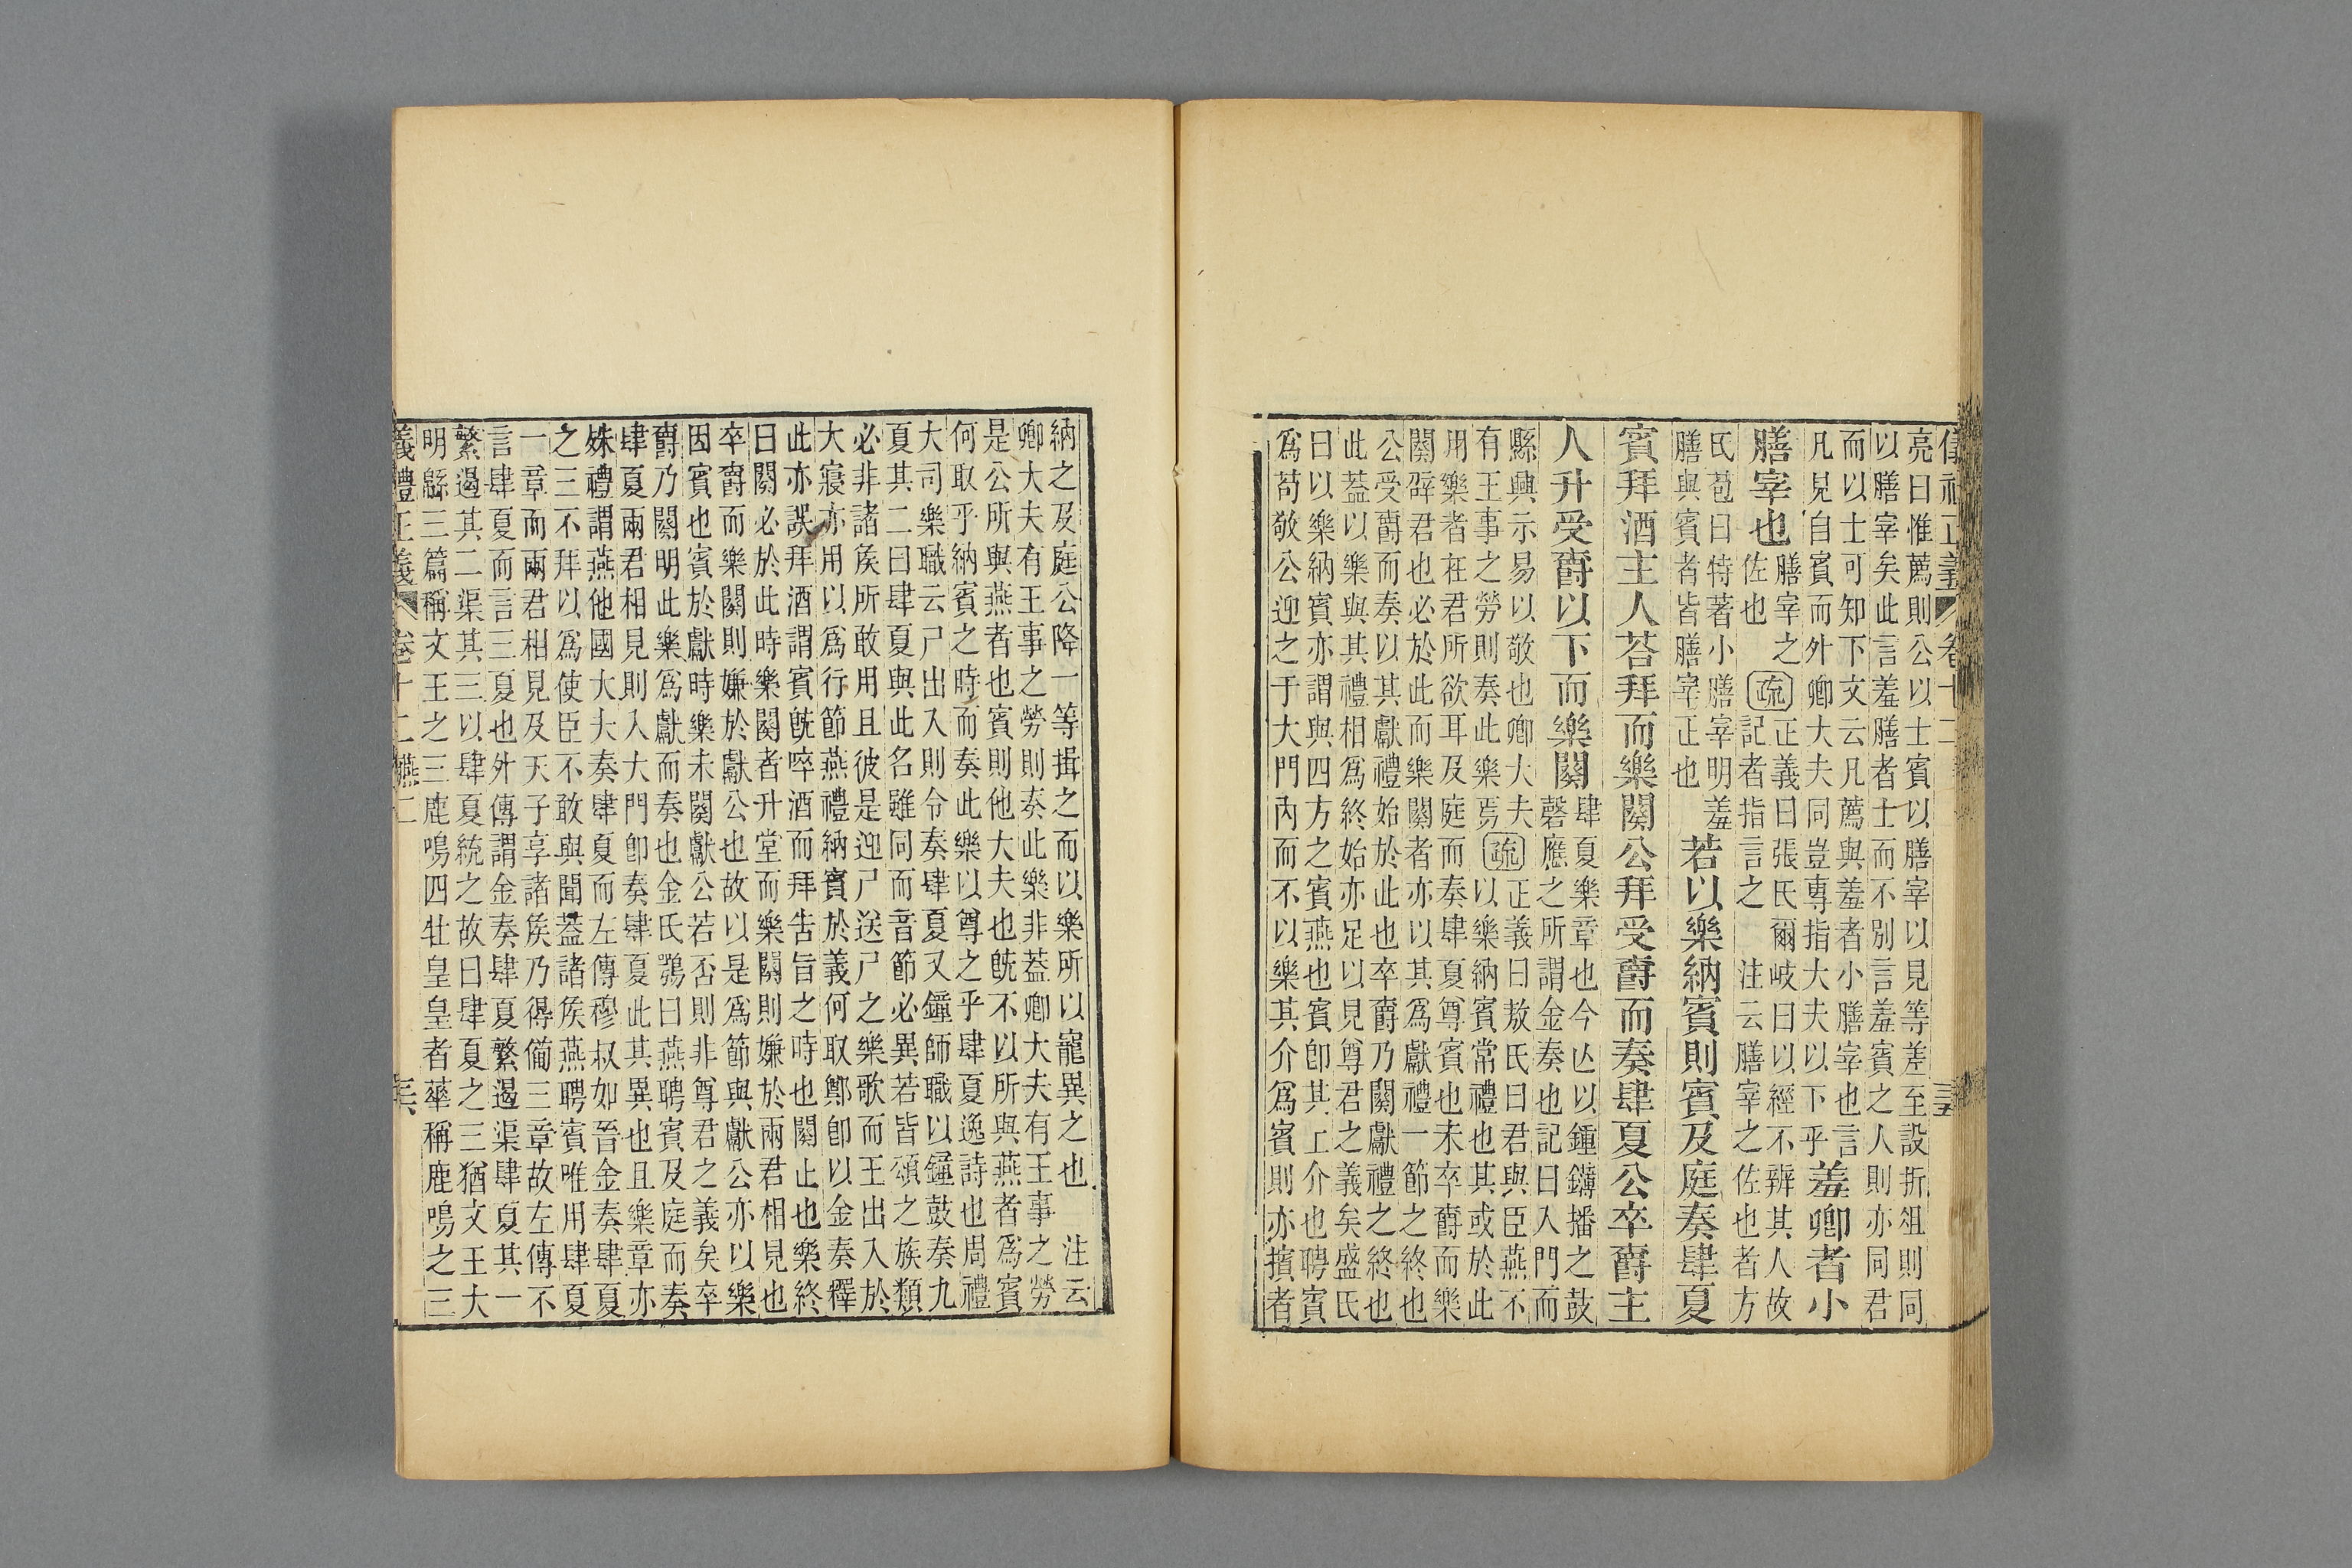 儀禮正義 卷十二 三五
亮曰惟薦則公以士賓以膳宰以見等差至設折俎則同
以膳宰矣此言羞膳者士而不別言羞賓之人則亦同君
而以士可知下文云凡薦與羞者小膳宰也言
凡見自賓而外卿大夫同豈專指大夫以下乎
羞卿者小
膳宰也
膳宰之
佐也
疏
正義曰張氏爾岐曰以經不辨其人故
記者指言之 注云膳宰之佐也者方
氏苞曰特著小膳宰明羞
膳與賓者皆膳宰正也
若以樂納賓則賓及庭奏肆夏
賓拜酒主人荅拜而樂闋公拜受爵而奏肆夏公卒爵主
人升受爵以下而樂闋
肆夏樂章也今亾以鍾鑮播之鼓
磬應之所謂金奏也記曰入門而
縣興示易以敬也卿大夫
有王事之勞則奏此樂焉
疏
正義曰敖氏曰君與臣燕不
以樂納賓常禮也其或於此
用樂者在君所欲耳及庭而奏肆夏尊賓也未卒爵而樂
闋辟君也必於此而樂闋者亦以其爲獻禮一節之終也
公受爵而奏以其獻禮始於此也卒爵乃闋獻禮之終也
此葢以樂與其禮相爲終始亦足以見尊君之義矣盛氏
曰以樂納賓亦謂與四方之賓燕也賓卽其上介也聘賓
爲苟敬公迎之于大門內而不以樂其介爲賓則亦擯者
納之及庭公降一等揖之而以樂所以寵異之也 注云
卿大夫有王事之勞則奏此樂非葢卿大夫有王事之勞
是公所與燕者也賓則他大夫也旣不以所與燕者爲賓
何取乎納賓之時而奏此樂以尊之乎肆夏逸詩也周禮
大司樂職云尸出入則令奏肆夏又鐘師職以鐘鼓奏九
夏其二曰肆夏與此名雖同而音節必異若皆頌之族類
必非諸侯所敢用且彼是迎尸送尸之樂歌而王出入於
大寢亦用以爲行節燕禮納賓於義何取鄭卽以金奏釋
此亦誤拜酒謂賓旣啐酒而拜告旨之時也闋止也樂終
曰闋必於此時樂闋者升堂而樂闋則嫌於兩君相見也
卒爵而樂闋則嫌於獻公也故以是爲節與獻公亦以樂
因賓也賓於獻時樂未闋獻公若否則非尊君之義矣卒
爵乃闋明此樂爲獻而奏也金氏鶚曰燕聘賓及庭而奏
肆夏兩君相見則入大門卽奏肆夏此其異也且樂章亦
殊禮謂燕他國大夫奏肆夏而左傳穆叔如晉金奏肆夏
之三不拜以爲使臣不敢與聞葢諸侯燕聘賓唯用肆夏
一章而兩君相見及天子享諸侯乃得備三章故左傳不
言肆夏而言三夏也外傳謂金奏肆夏繁遏渠肆夏其一
繁遏其二渠其三以肆夏統之故曰肆夏之三猶文王大
明緜三篇稱文王之三鹿鳴四牡皇皇者華稱鹿鳴之三
儀禮正義 卷十二 燕二 三六